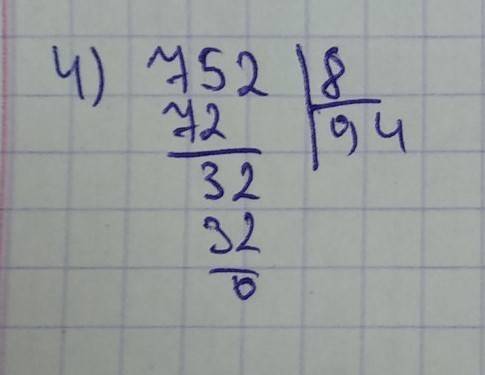 4) 752 | 8
72 | 94
32
32
0